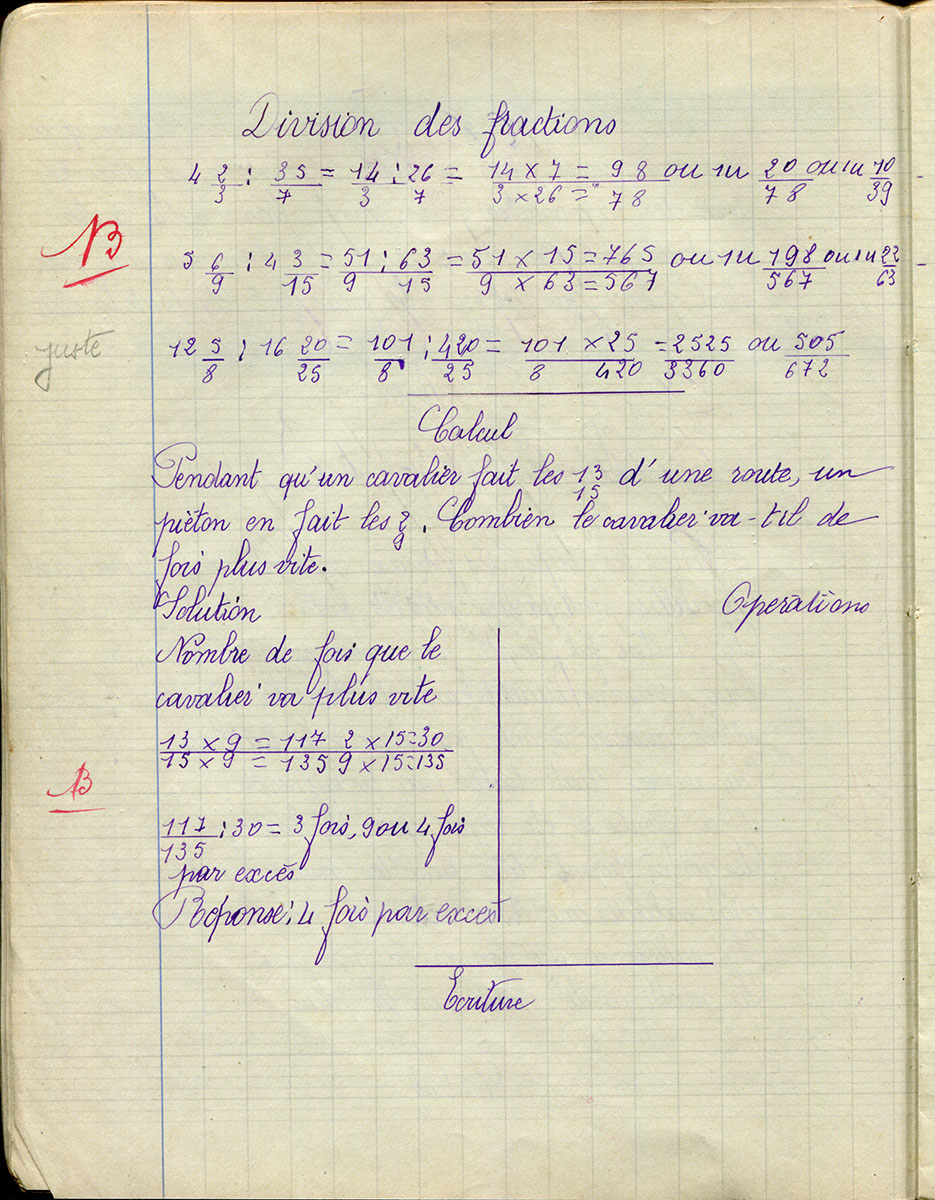 Division des fractions
4 2/3 : 3 5/7 = 14/3 : 26/7 = 14 × 7 = 98 / 3 × 26 = 78 ou 1u 20/78 ou 1u 10/39
B
5 6/9 : 4 3/15 = 51/9 : 63/15 = 51 × 15 = 765 / 9 × 63 = 567 ou 1u 198/567 ou 1u 22/63
juste
12 5/8 : 16 20/25 = 101/8 : 420/25 = 101 × 25 / 8 420 = 2525/3360 ou 505/672
Calcul
Pendant qu'un cavalier fait les 13/15 d'une route, un
piéton en fait les 2/9. Combien le cavalier va-t'il de
fois plus vite.
Solution Opérations
Nombre de fois que le
cavalier va plus vite
13 × 9 = 117 2 × 15 = 30
15 × 9 = 135 9 × 15 = 135
B
117/135 : 30 = 3 fois, 9 ou 4 fois
par excès
Réponse : 4 fois par excest
Ecriture